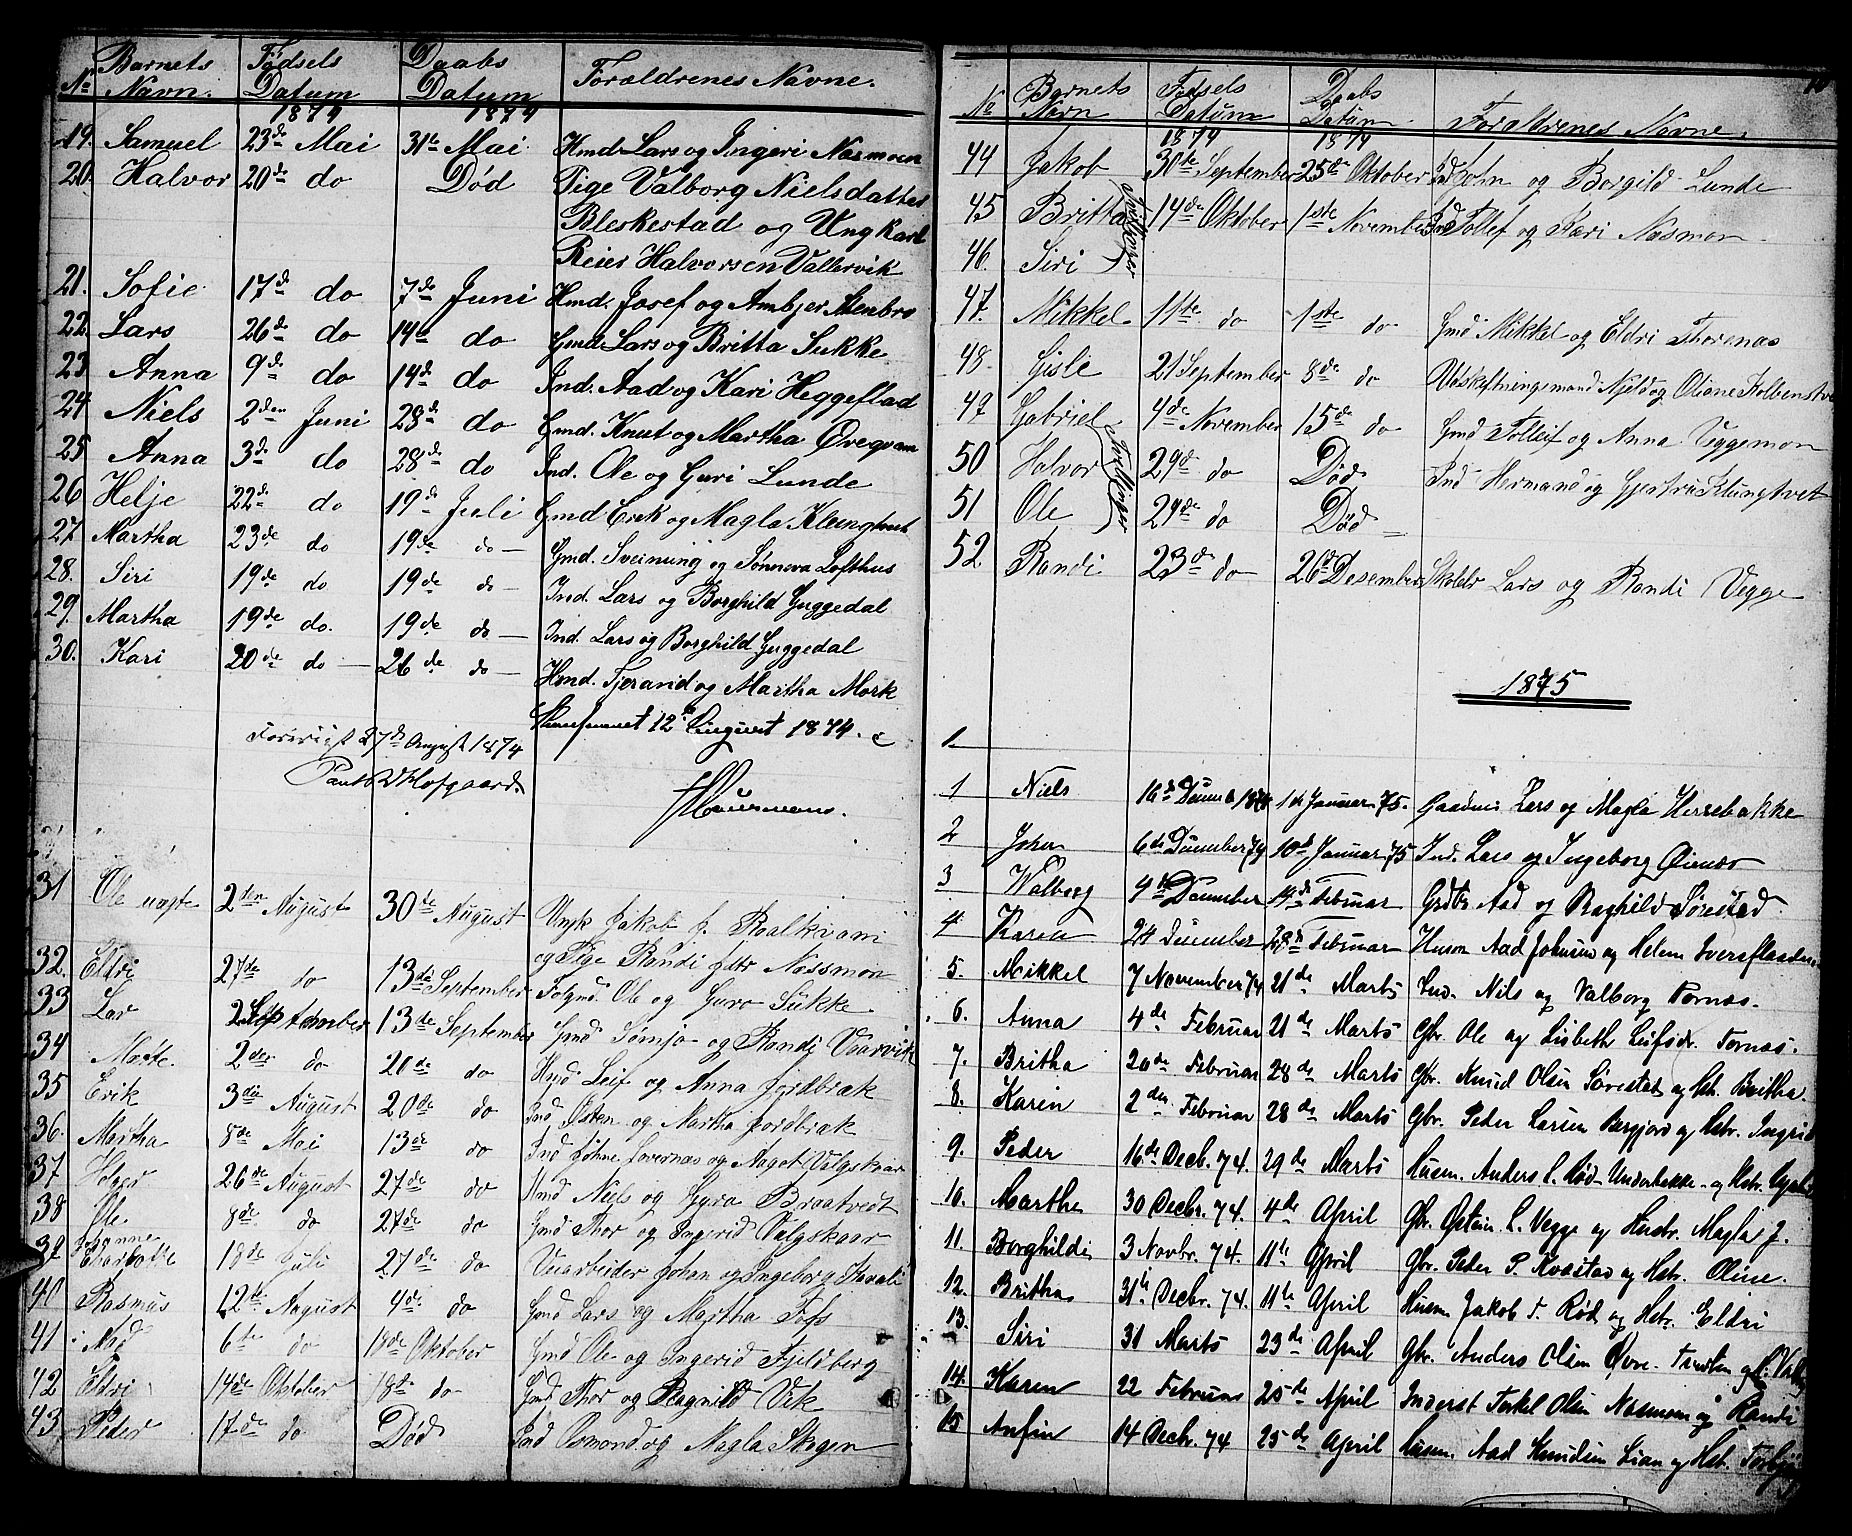 No Barnets Navn. Fødsels Datum Daabs Datum Forældrenes Navne.
1874 1874
19. Samuel 23de Mai 31te Mai Hmd. Lars og Ingeri Næsmoen
20. Halvor 20de do Død Pige Valborg Nielsdatter
Bleskestad og Ungkarl
Reier Halvorsen Vallervik
21. Sofie 17de do 7de Juni Hmd. Josef og Ambjer Stenbro
22. Lars 26de do 14de do Gmd. Lars og Britta Sukke
23 Anna 9de do 14de do Ind. Aad og Kari Heggeflad
24 Niels 2den Juni 28de do Gmd. Knut og Martha Øvreqvam
25 Anna 3de do 28de do Ind. Ole og Guri Lunde
26 Helje 22de do 19de Juli Gmd Erik og Magla
27 Martha 23de do 19de do Gmd. Sveinung og Sønneva Lofthus
28. Siri 19de do 19de do Ind. Lars og Borghild Guggedal
29. Martha 19de do. 19de do Ind. Lars og Borghild Guggedal
30. Kari 20de do 26de do Hmd. Tjerand og Martha Mork
12te August 1874.
27de August 1874
Hofgaard
31 Ole 2den August 30te August Ungk Jakob J. Roalkvam
og Pige Randi Næssmon
32. Eldri 27de do 13de September Folgmd. Ole og Guro Sukke
33 Lar 2 September 13de September Gmd Tømjo og Randi Vaarvik
34 Marte 2den do 20de do Hmd Leif og Anna Jordbræk
35 Erik 3die August 20de do Ind Østen og Martha Jordbræk
36. Martha 8de Mai 13de do Ind Johne og Aagot Valgskaar
37 Holger 26de August 27de do Hmd Niels og Gyro Braatvedt
38 Ole 8de do 27de do Gmd Thor og Ingerid Valgskaar
39 Johanne Charlotte 18de Juli 27de do Veiarbeider Johan og Ingeborg
40 Rasmus 12te August 4de do Gmd Lars og Martha Fos
41 Aad 6te do 18de Oktober Gmd Ole og Ingerid Fjeldberg
42 Eldri 14de Oktober 18de do Gmd Thor og Ragnild Vik
43 Peder 17de do Død Ind Osmond og Magla Skogen
No Barnets Navn Fødsels Datum Daabs Datum Forældrenes Navne.
1874 1874
44 Jakob 30te September 25de Oktober Ind John og Borgild Lunde
45 Britta 14de Oktober 1ste November Ind Tollef og Kari Næsmon
46. Siri
Tvillinger
47. Mikkel 11te do 1ste do Gmd Mikkel og Eldri Thorenæs
48. Gisle 21 September 8de do Udskiftningsmand Njeld og Oliane
49 Gabriel 4de November 15de do Gmd Tolleif og Anna Veggemon
50 Halvor 29de do Død Ind Hermand og Gjertru Klungtvet
51 Ole 29de do Død
Tvillinger
52 Randi 23de do 26de Desember Skolelr Lars og Randi Vegge
1875
1
1 Niels 16de 1874 1ste Januar 75. Gaardm. Lars og Magla Herrebakke
2 Johan 6de December 74 10de Januar 75 Ind. Lars og Ingeborg
3 Walborg 4de December 14de Februar Grdbr Aad og Raghild Sørestad
4. Karen 24 December 28de Februar Husm Aad Johnsen og Helene
5. Mikkel 7 November 74 21de Marts Ind. Nils og Valborg Tornæs.
6. Anna 4de Februar 21de Marts Gbr. Ole og Lisbeth Leifsdr. Tornæs.
7. Britha 20de Februar 28de Marts Gbr. Knud Olsen Sørestad og Hst. Britha.
8. Karin 2den Februar 28de Marts Gbr. Peder Larsen og Hstr. Ingrid
9. Peder 16de Decb. 74. 29de Marts Husm. Anders L. Rød Underbakke og Hstr.
10. Marthe 30 Decbr. 74. 4de April Gbr. Østein L. Vegge og Hustr. Magla J.
11. Borghilde 3 Novbr. 74. 11te April Gbr. Peder P. Kvæstad og Hstr. Oline.
12. Britha 31te Decbr. 74. 11te April Husm Jakob T. Rød og Hstr. Eldri
13. Siri 31 Marts 23de April Gbr. Anders Olsen Øvre
14. Karen 22 Februar 25de April Inderst Torkel Olsen Næsmoen og Randi
15 Anfin 14 Decbr. 74 25de April Husm. Aad Knudsen Lian og Hst.